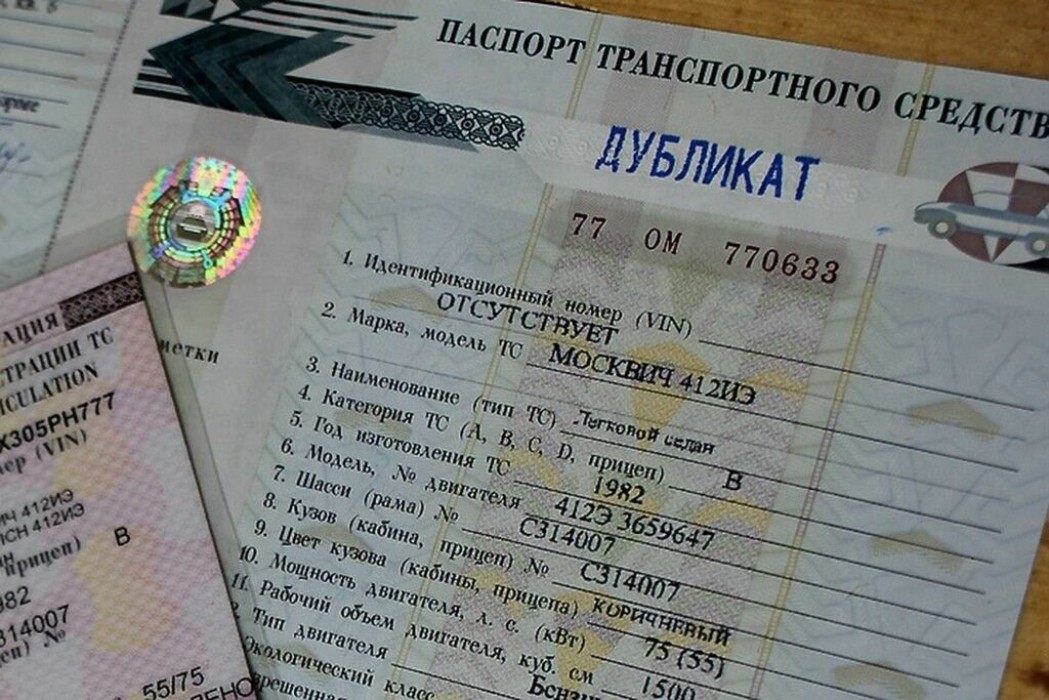 ПАСПОРТ ТРАНСПОРТНОГО СРЕДСТВ
ДУБЛИКАТ
77 ОМ 770633
1. Идентификационный номер (VIN)
ОТСУТСТВУЕТ
2. Марка, модель ТС МОСКВИЧ 412ИЭ
3. Наименование (тип ТС) Легковой седан
4. Категория ТС (А, В, С, D, прицеп) В
5. Год изготовления ТС 1982
6. Модель, № двигателя 412Э 3659647
7. Шасси (рама) № С314007
8. Кузов (кабина, прицеп) № С314007
9. Цвет кузова (кабины, прицепа) КОРИЧНЕВЫЙ
10. Мощность двигателя, л. с. (кВт) 75 (55)
11. Рабочий объем двигателя, куб. см 1500
Тип двигателя Бензин
Экологический класс
метки
АЦИЯ
СТРАЦИИ ТС
ICULATION
Х305РН777
ер (VIN)
ич 412ИЭ
ПСН 412ИЭ
прицеп) В
982
314007
еп) №
55/75